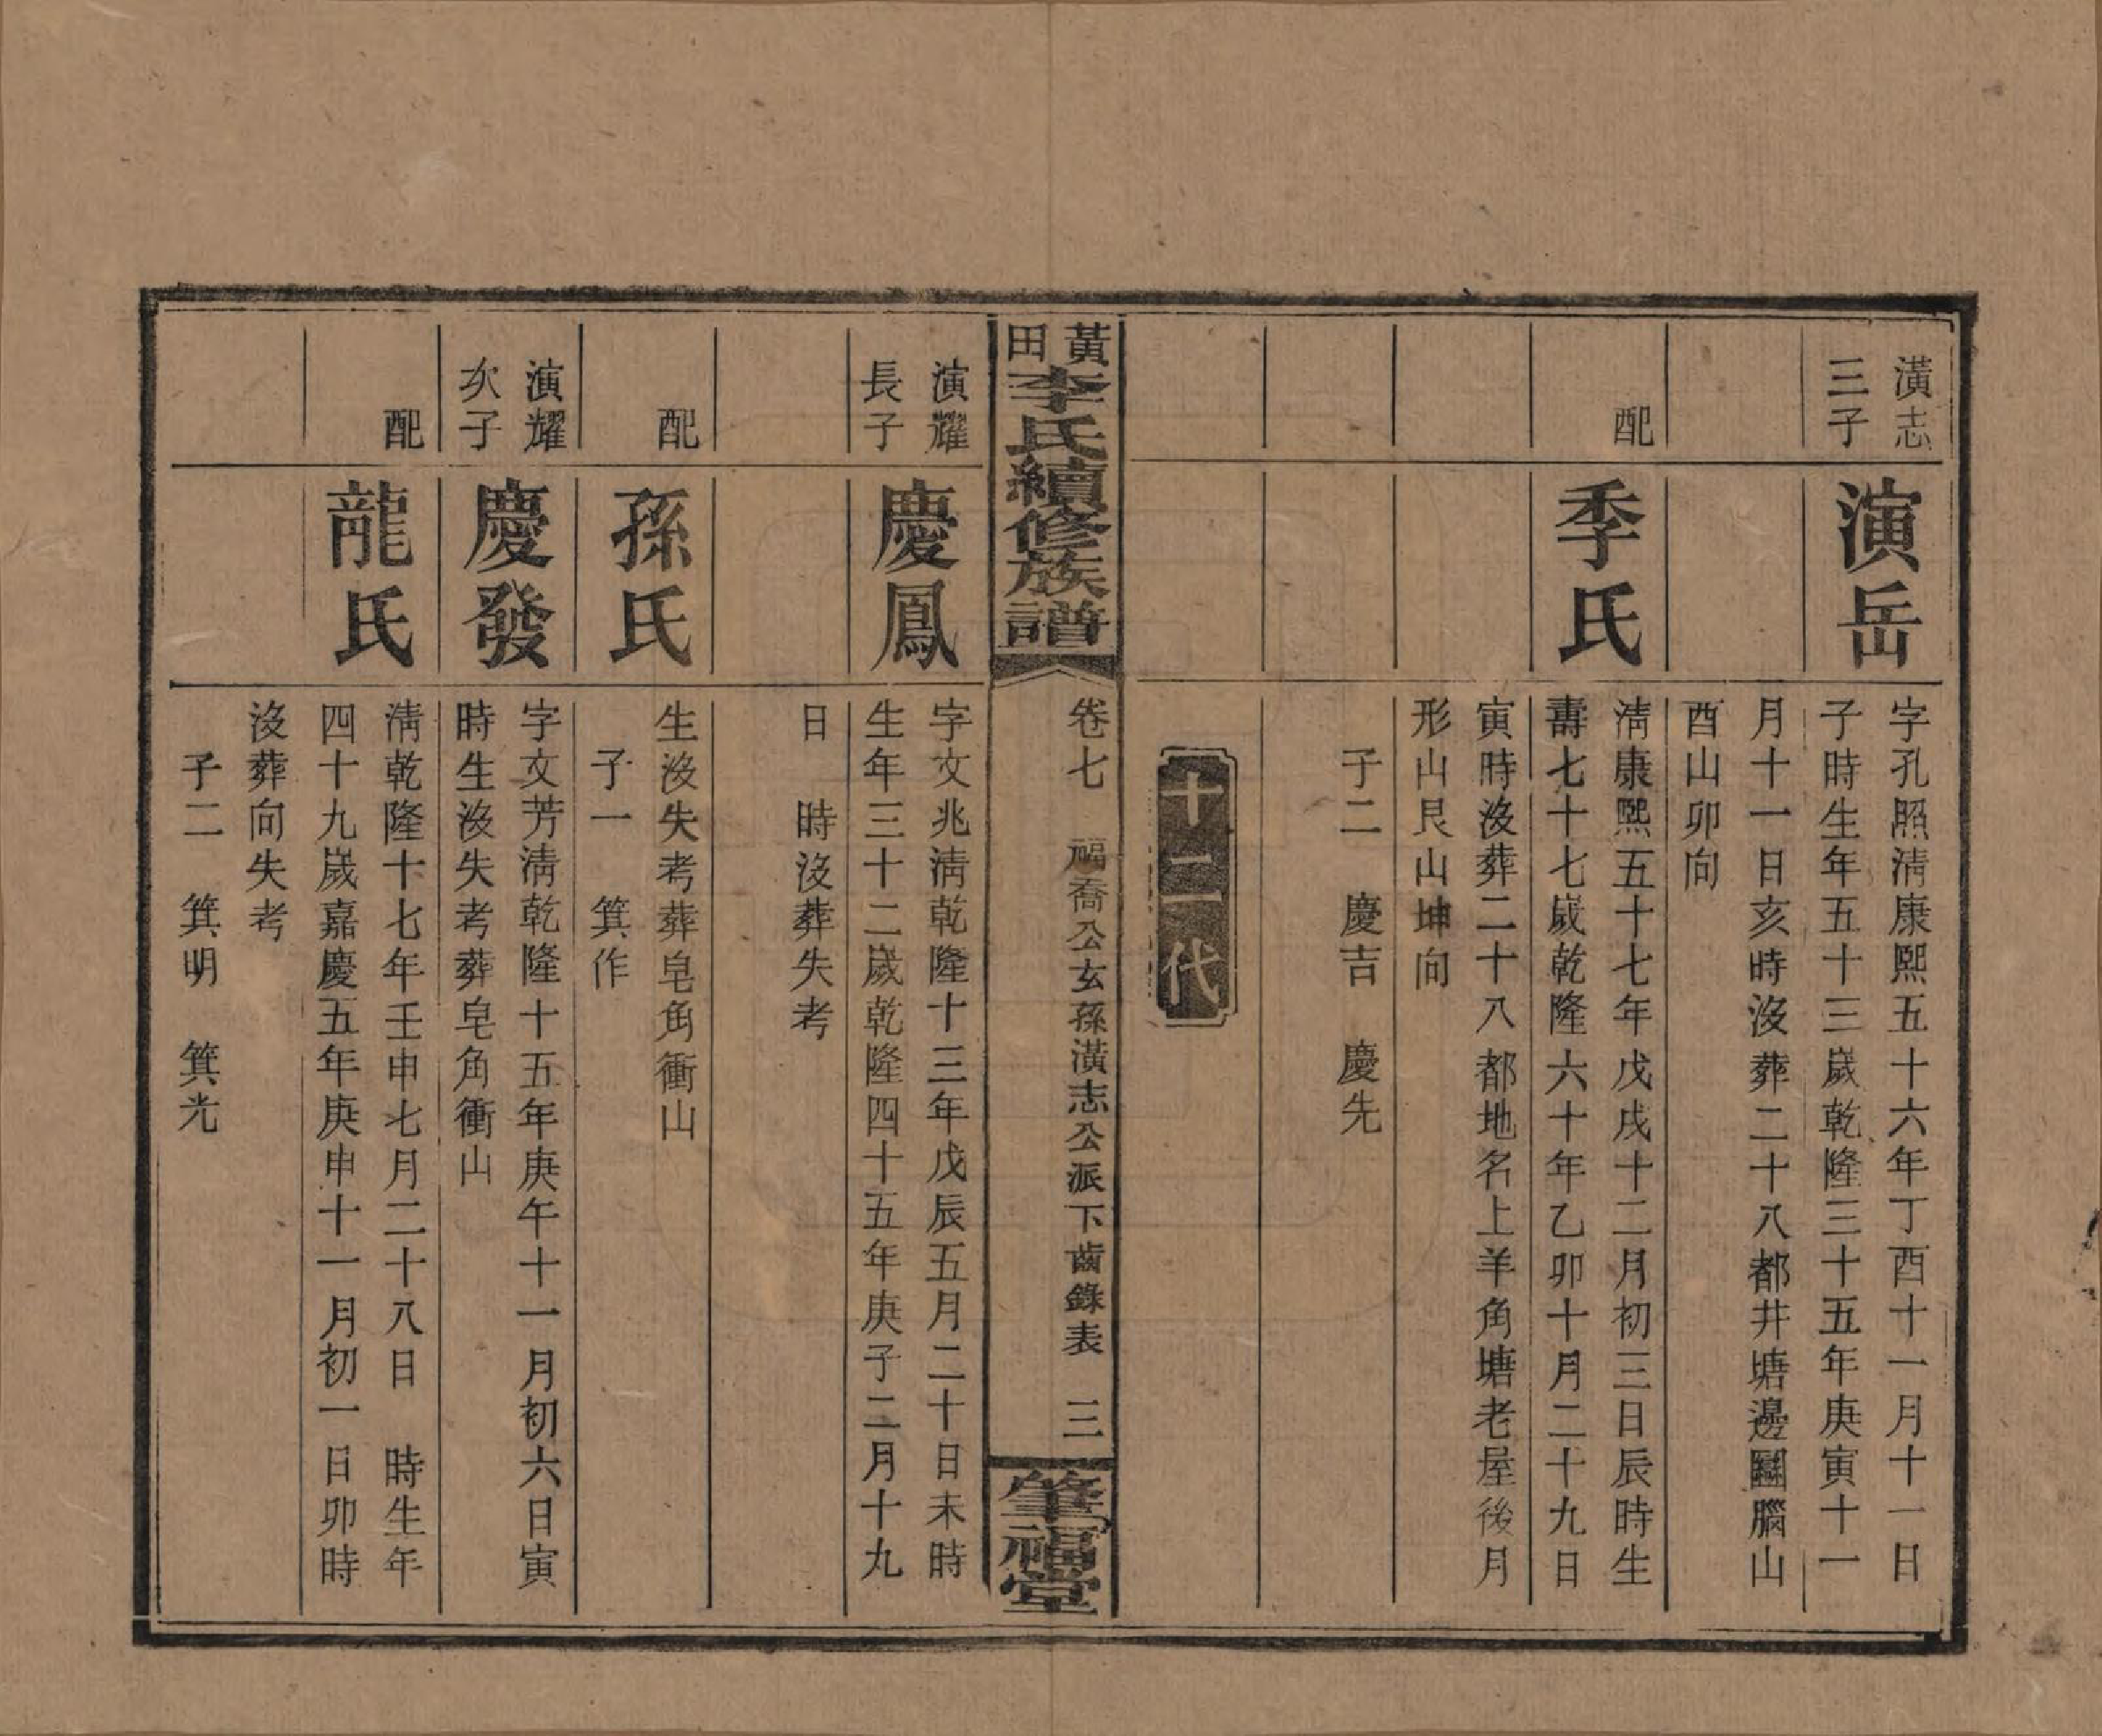 潢志
三子
演岳
字孔照淸康熙五十六年丁酉十一月十一日
子時生年五十三歲乾隆三十五年庚寅十一
月十一日亥時沒葬二十八都井塘邊圞腦山
酉山卯向
配
季氏
淸康熙五十七年戊戌十二月初三日辰時生
壽七十七歲乾隆六十年乙卯十月二十九日
寅時沒葬二十八都地名上羊角塘老屋後月
形山艮山坤向
子二　慶吉　慶先
十二代
黃田李氏續修族譜
卷七　福喬公玄孫潢志公派下齒錄表　三
肇福堂
演耀
長子
慶鳳
字文兆淸乾隆十三年戊辰五月二十日未時
生年三十二歲乾隆四十五年庚子二月十九
日　時沒葬失考
配
孫氏
生沒失考葬皂角衝山
子一　箕作
演耀
次子
慶發
字文芳淸乾隆十五年庚午十一月初六日寅
時生沒失考葬皂角衝山
配
龍氏
淸乾隆十七年壬申七月二十八日　時生年
四十九歲嘉慶五年庚申十一月初一日卯時
沒葬向失考
子二　箕明　箕光